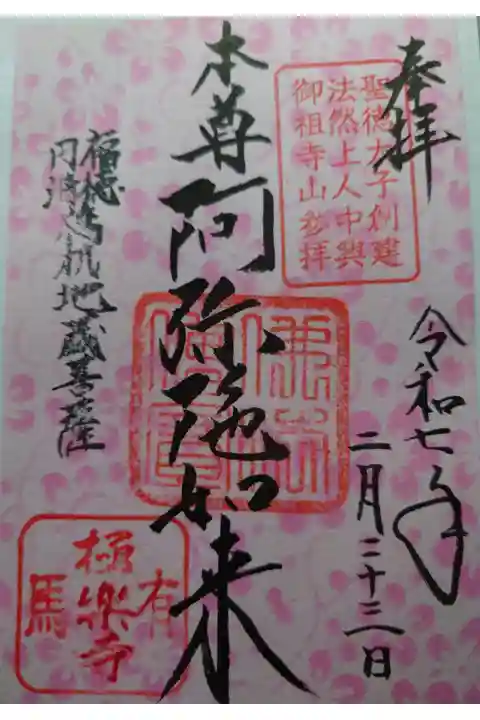 奉拝
聖徳太子創建
法然上人中興
御祖寺山参拝
令和七年
二月二十三日
本尊阿弥陀如来
福徳
円満
地蔵菩薩
有馬
極楽寺